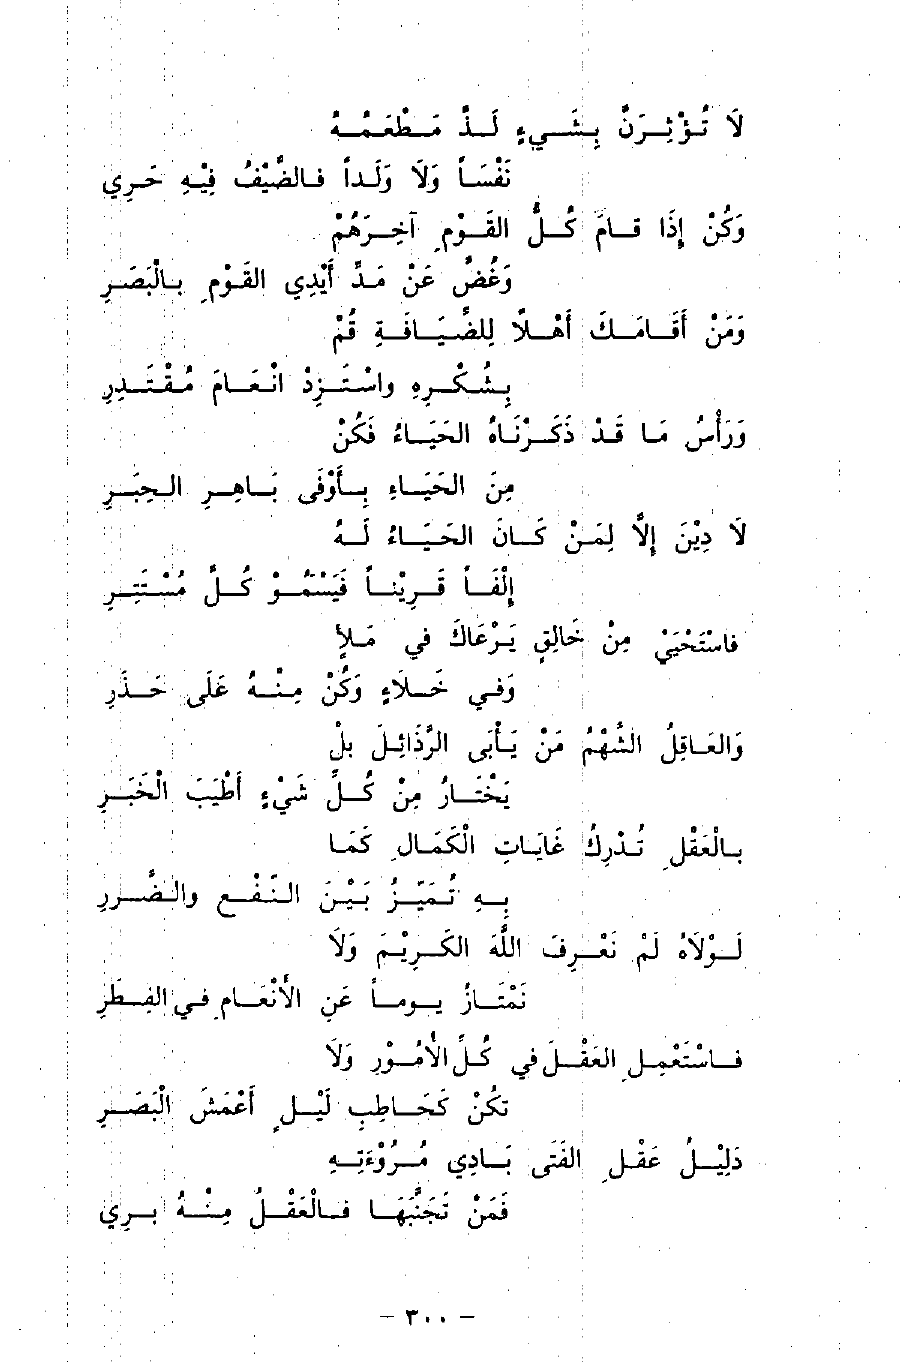 لَا تُؤْثِرَنَّ بِشَيءٍ لَذَّ مَطْعَمُهُ
نَفْسَاً وَلَا وَلَداً فالضَّيْفُ فِيْهِ حَرِي
وَكُنْ إِذَا قامَ كُلُّ القَوْمِ آخِرَهُمْ
وَغُضَّ عَنْ مَدِّ أَيْدِي القَوْمِ بالْبَصَرِ
وَمَنْ أَقَامَكَ أَهْلًا لِلضِّيَافَةِ قُمْ
بِشُكْرِهِ واسْتَزِدْ انْعَامَ مُقْتَدِرِ
وَرَأْسُ مَا قَدْ ذَكَرْنَاهُ الحَيَاءُ فَكُنْ
مِنَ الحَيَاءِ بِأَوْفَى بَاهِرِ الحِبَرِ
لَا دِيْنَ إِلَّا لِمَنْ كَانَ الحَيَاءُ لَهُ
إِلْفَاً قَرِيْناً فَيَسْمُوْ كُلَّ مُسْتَتِرِ
فاسْتَحْيَيْ مِنْ خَالِقٍ يَرْعَاكَ في مَلأٍ
وَفي خَلَاءٍ وَكُنْ مِنْهُ عَلَى حَذَرِ
وَالعَاقِلُ الشَّهْمُ مَنْ يَأْبَى الرَّذَائِلَ بلْ
يَخْتَارُ مِنْ كُلِّ شَيْءٍ أَطْيَبَ الْخَبَرِ
بالْعَقْلِ تُدْرِكُ غَايَاتِ الْكَمَالِ كَمَا
بِهِ تُمَيِّزُ بَيْنَ النَّفْعِ والضَّررِ
لَوْلَاهُ لَمْ نَعْرِفَ اللَّهَ الكَرِيْمَ وَلَا
نَمْتَازُ يوماً عَنِ الأَنْعَامِ في الفِطَرِ
فاسْتَعْمِلِ العَقْلَ في كُلِّ الأُمُوْرِ وَلَا
تكُنْ كَحَاطِبِ لَيْلٍ أَعْمَشَ الْبَصَرِ
دَلِيْلُ عَقْلِ الفَتَى بَادِي مُرُوْءَتِهِ
فَمَنْ تَجَنَّبَهَا فالْعَقْلُ مِنْهُ بري
- ٣٠٠ -